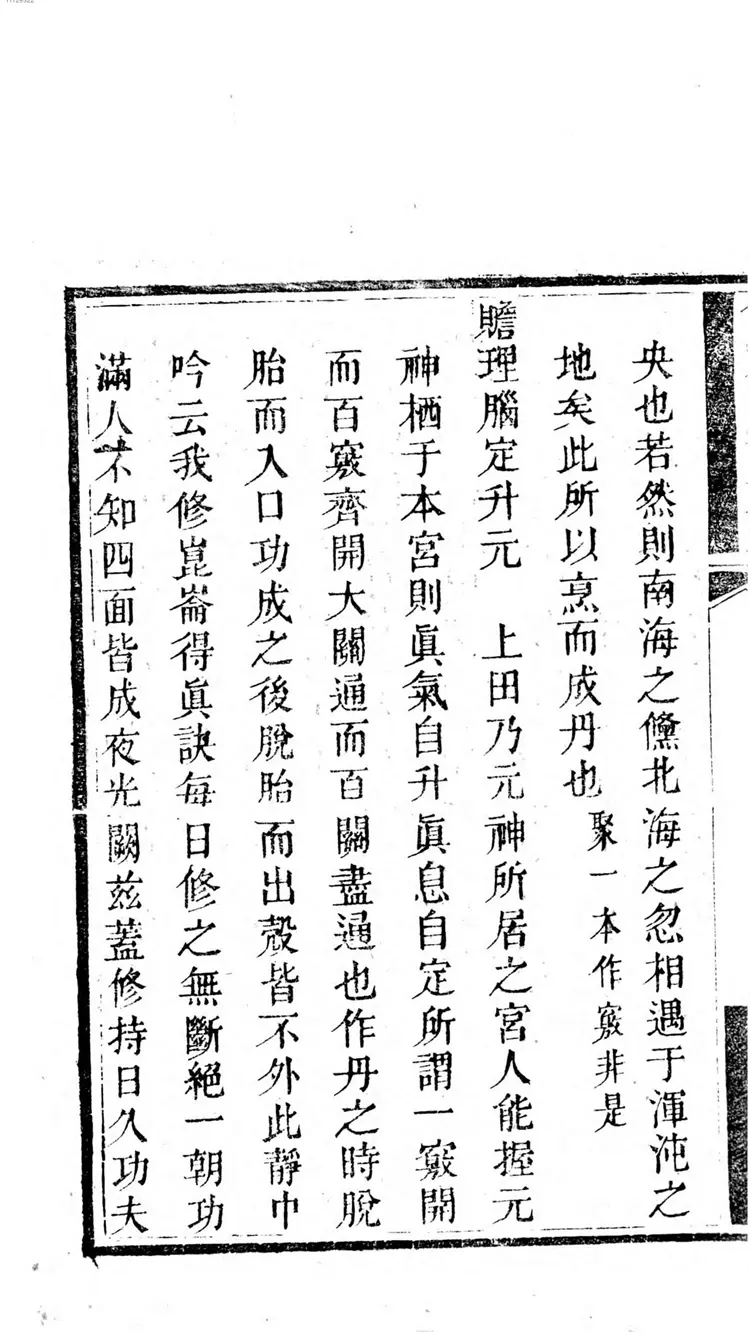 央也若然則南海之儵北海之忽相遇于渾沌之
地矣此所以烹而成丹也 聚一本作竅非是
贍理腦定升元 上田乃元神所居之宮人能握元
神栖于本宮則眞氣自升眞息自定所謂一竅開
而百竅齊開大關通而百關盡通也作丹之時脫
胎而入口功成之後脫胎而出殼皆不外此靜中
吟云我修崑崙得眞訣每日修之無斷絕一朝功
滿人不知四面皆成夜光闕茲蓋修持日久功夫